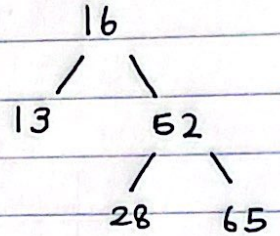 16
13 52
28 65